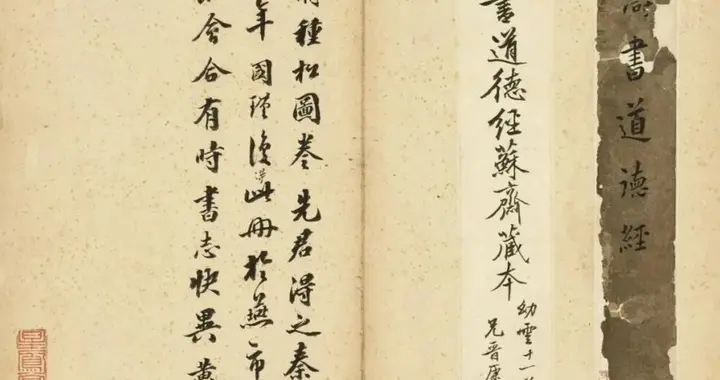 書道德經
書道德經蘇齋藏本
幼雲十一
兄晉康
種松圖卷先君得之秦
年國瑾復得此冊於燕市
會合有時書志快異黃